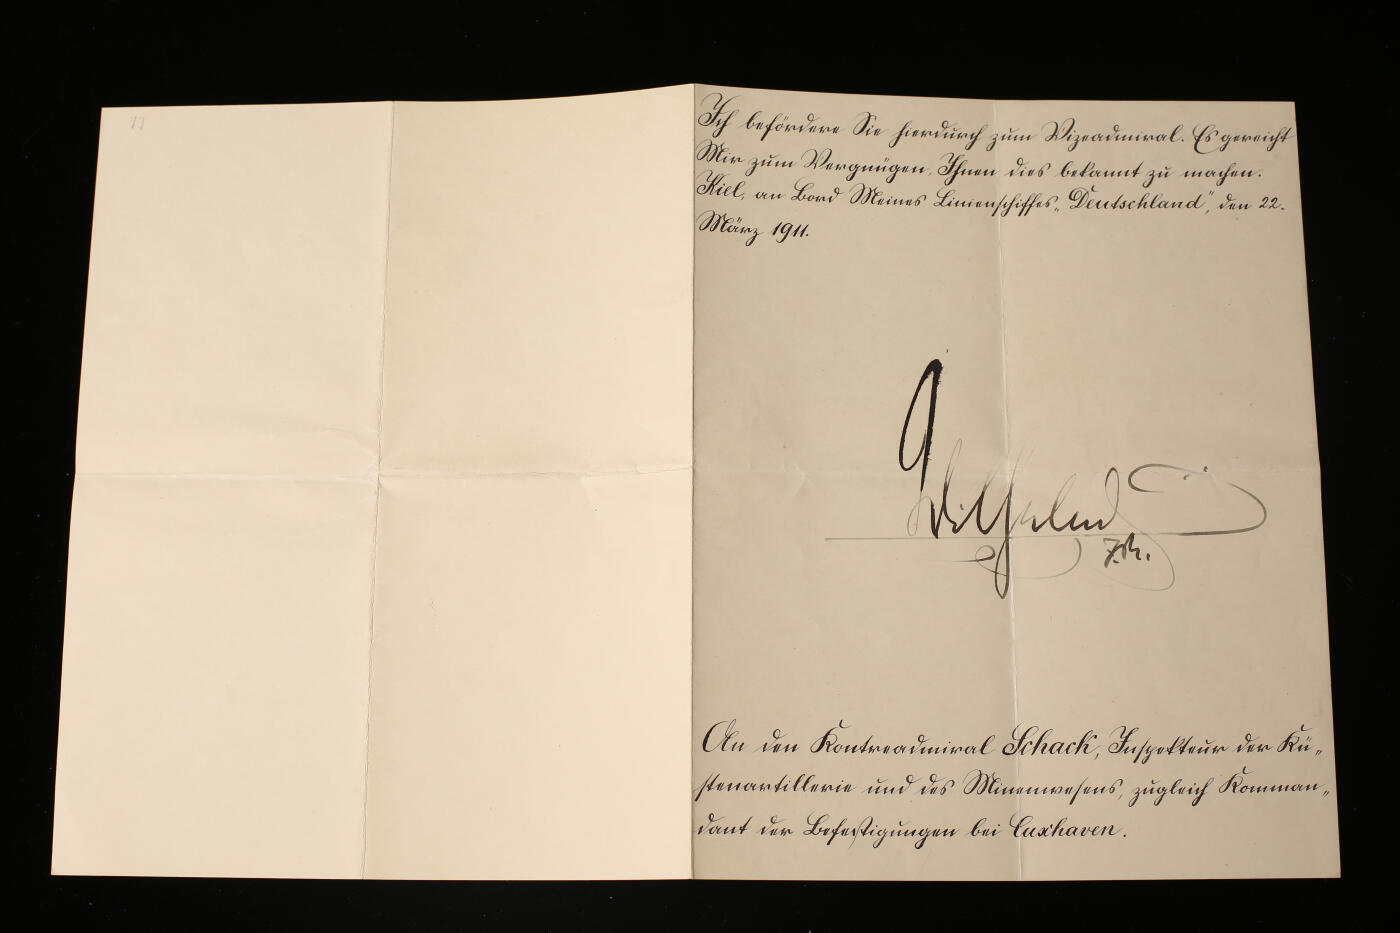 Ich befördere Sie hierdurch zum Vizeadmiral. Es gereicht
Mir zum Vergnügen, Ihnen dies bekannt zu machen.
Kiel, an Bord Meines Linienschiffes „Deutschland", den 22.
März 1911.
Wilhelm
I.R.
An den Kontreadmiral Schack, Inspekteur der Kü-
stenartillerie und des Minenwesens, zugleich Komman-
dant der Befestigungen bei Cuxhaven.